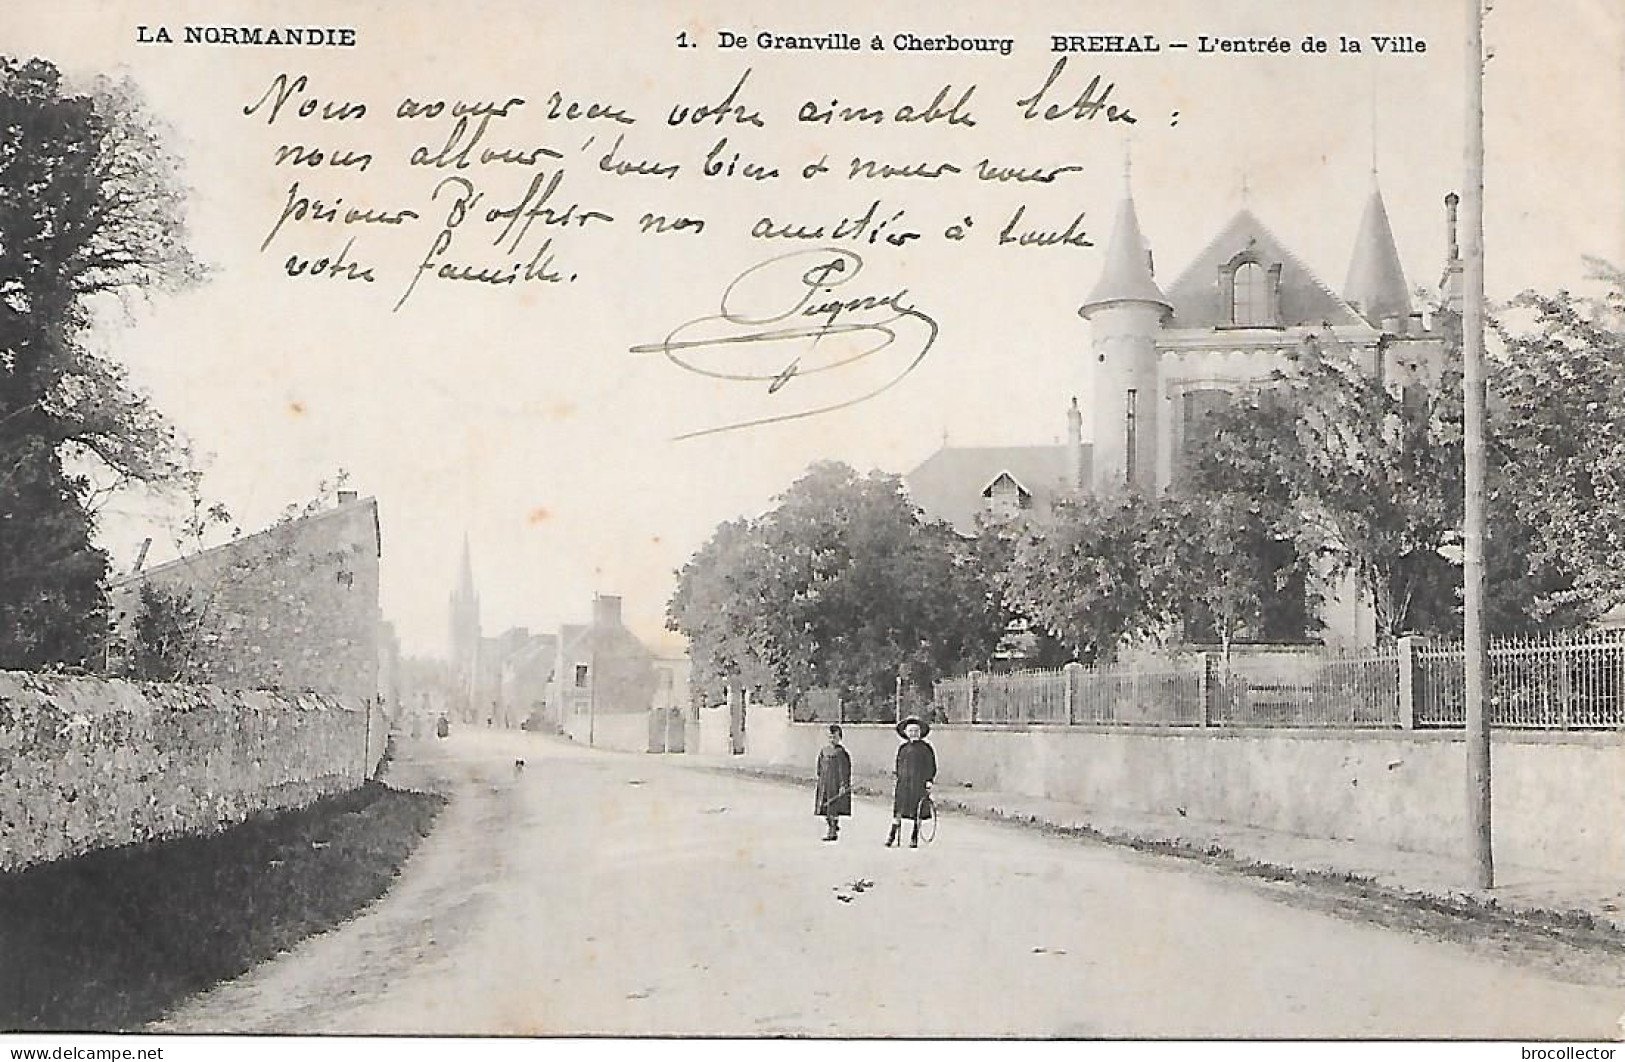 LA NORMANDIE
1. De Granville à Cherbourg BREHAL — L'entrée de la Ville
Nous avons recu votre aimable lettre :
nous allons tous bien & nous vous
prions d'offrir nos amitiés à toute
votre famille.
Pignel
www.delcampe.net
brocollector